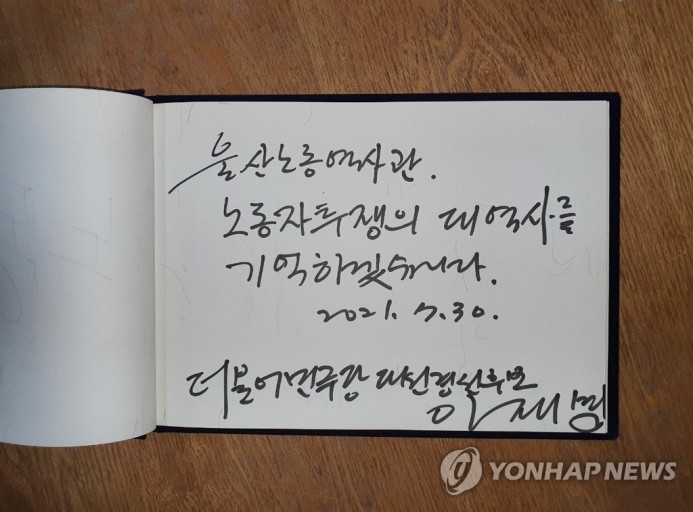 울산노동역사관.
노동자투쟁의 대역사를
기억하겠습니다.
2021. 7. 30.
더불어민주당 대선경선후보
이재명
YONHAP NEWS